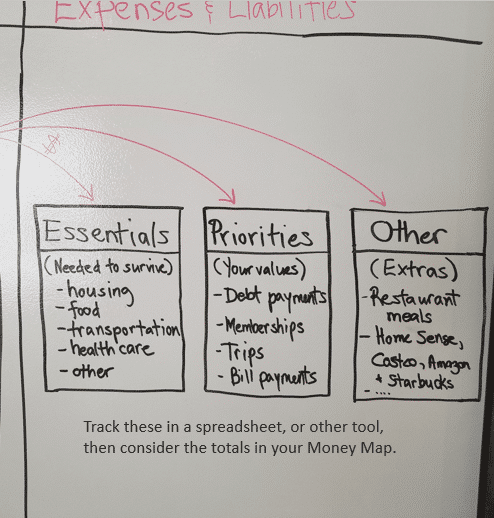 Expenses & Liabilities
$
Essentials
(Needed to survive)
- housing
- food
- transportation
- health care
- other
Priorities
(Your values)
- Debt payments
- Memberships
- Trips
- Bill payments
Other
(Extras)
- Restaurant
meals
- Home Sense,
Costco, Amazon
& Starbucks
- ....
Track these in a spreadsheet, or other tool,
then consider the totals in your Money Map.